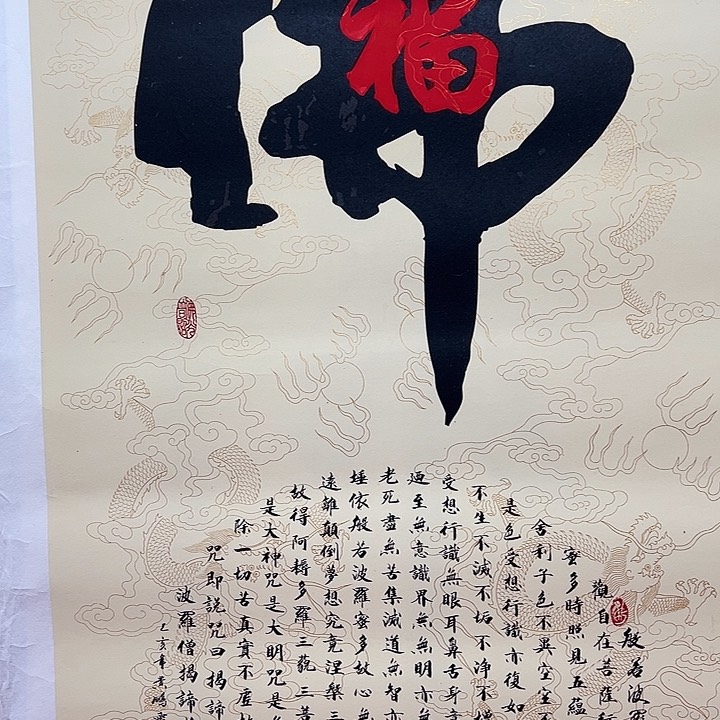 福
般若波羅
觀自在菩薩行
蜜多時照見五蘊
舍利子色不異空空
是色受想行識亦復如
不生不滅不垢不淨不增
受想行識無眼耳鼻舌身意
迺至無意識界無無明亦
老死盡無苦集滅道無智亦
埵依般若波羅蜜多故心無
遠離顛倒夢想究竟涅槃三
故得阿耨多羅三藐三菩
是大神咒是大明咒是
除一切苦真實不虛
咒即說咒曰揭諦
波羅僧揭諦